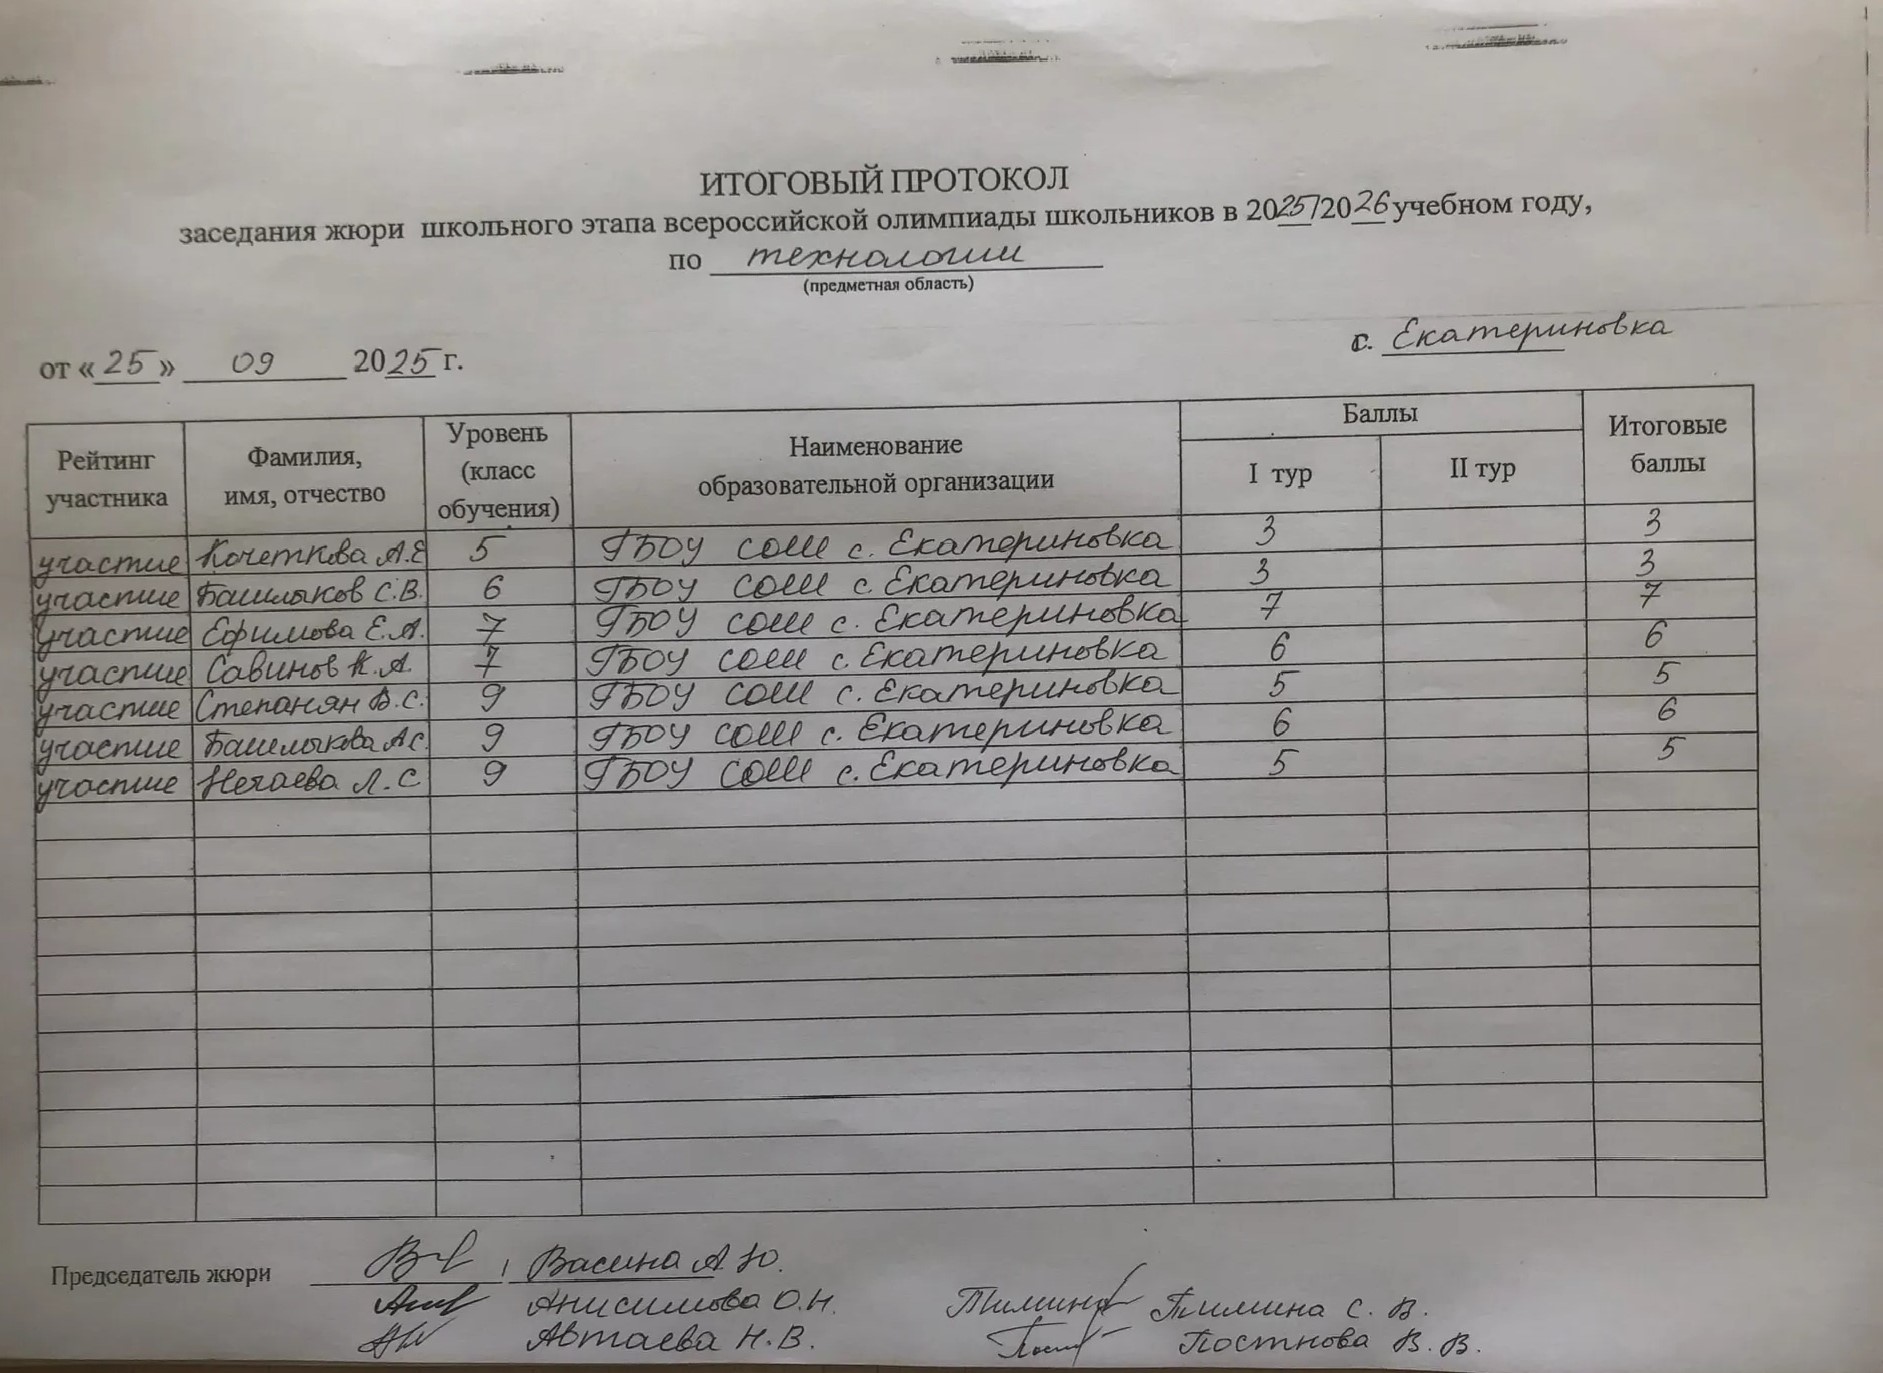 ИТОГОВЫЙ ПРОТОКОЛ
заседания жюри школьного этапа всероссийской олимпиады школьников в 2025/2026 учебном году,
по технологии
(предметная область)
с. Екатериновка
от «25» 09 2025 г.
Рейтинг участника Фамилия, имя, отчество Уровень (класс обучения) Наименование образовательной организации Баллы I тур II тур Итоговые баллы
участие Кочеткова А.Е 5 ГБОУ СОШ с. Екатериновка 3 3
участие Башлыков С.В. 6 ГБОУ СОШ с. Екатериновка 3 3
участие Ефимова Е.А. 7 ГБОУ СОШ с. Екатериновка 7 7
участие Савинов К.А. 7 ГБОУ СОШ с. Екатериновка 6 6
участие Степанян В.С. 9 ГБОУ СОШ с. Екатериновка 5 5
участие Башлыкова А.С. 9 ГБОУ СОШ с. Екатериновка 6 6
участие Нечаева Л.С 9 ГБОУ СОШ с. Екатериновка 5 5
Председатель жюри Васина А.Ю.
Анисимова О.Н. Тимина С.В.
Автаева Н.В. Постнова В.В.